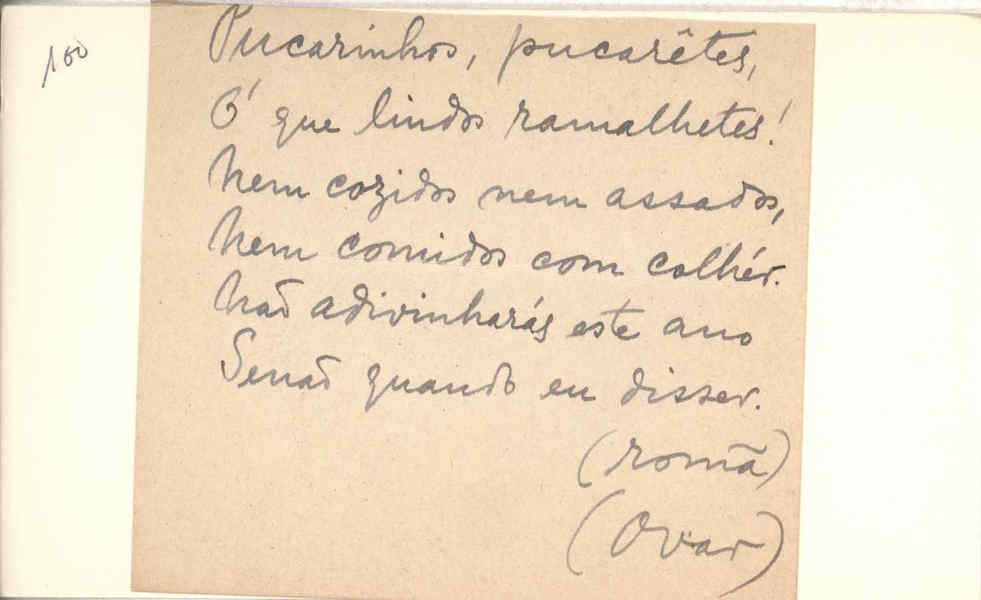 100
Pucarinhos, pucarêtes,
Ó que lindos ramalhetes!
Nem cozidos nem assados,
Nem comidos com colhér.
Não adivinharás este ano
Senão quando eu disser.
(romã)
(Ovar)